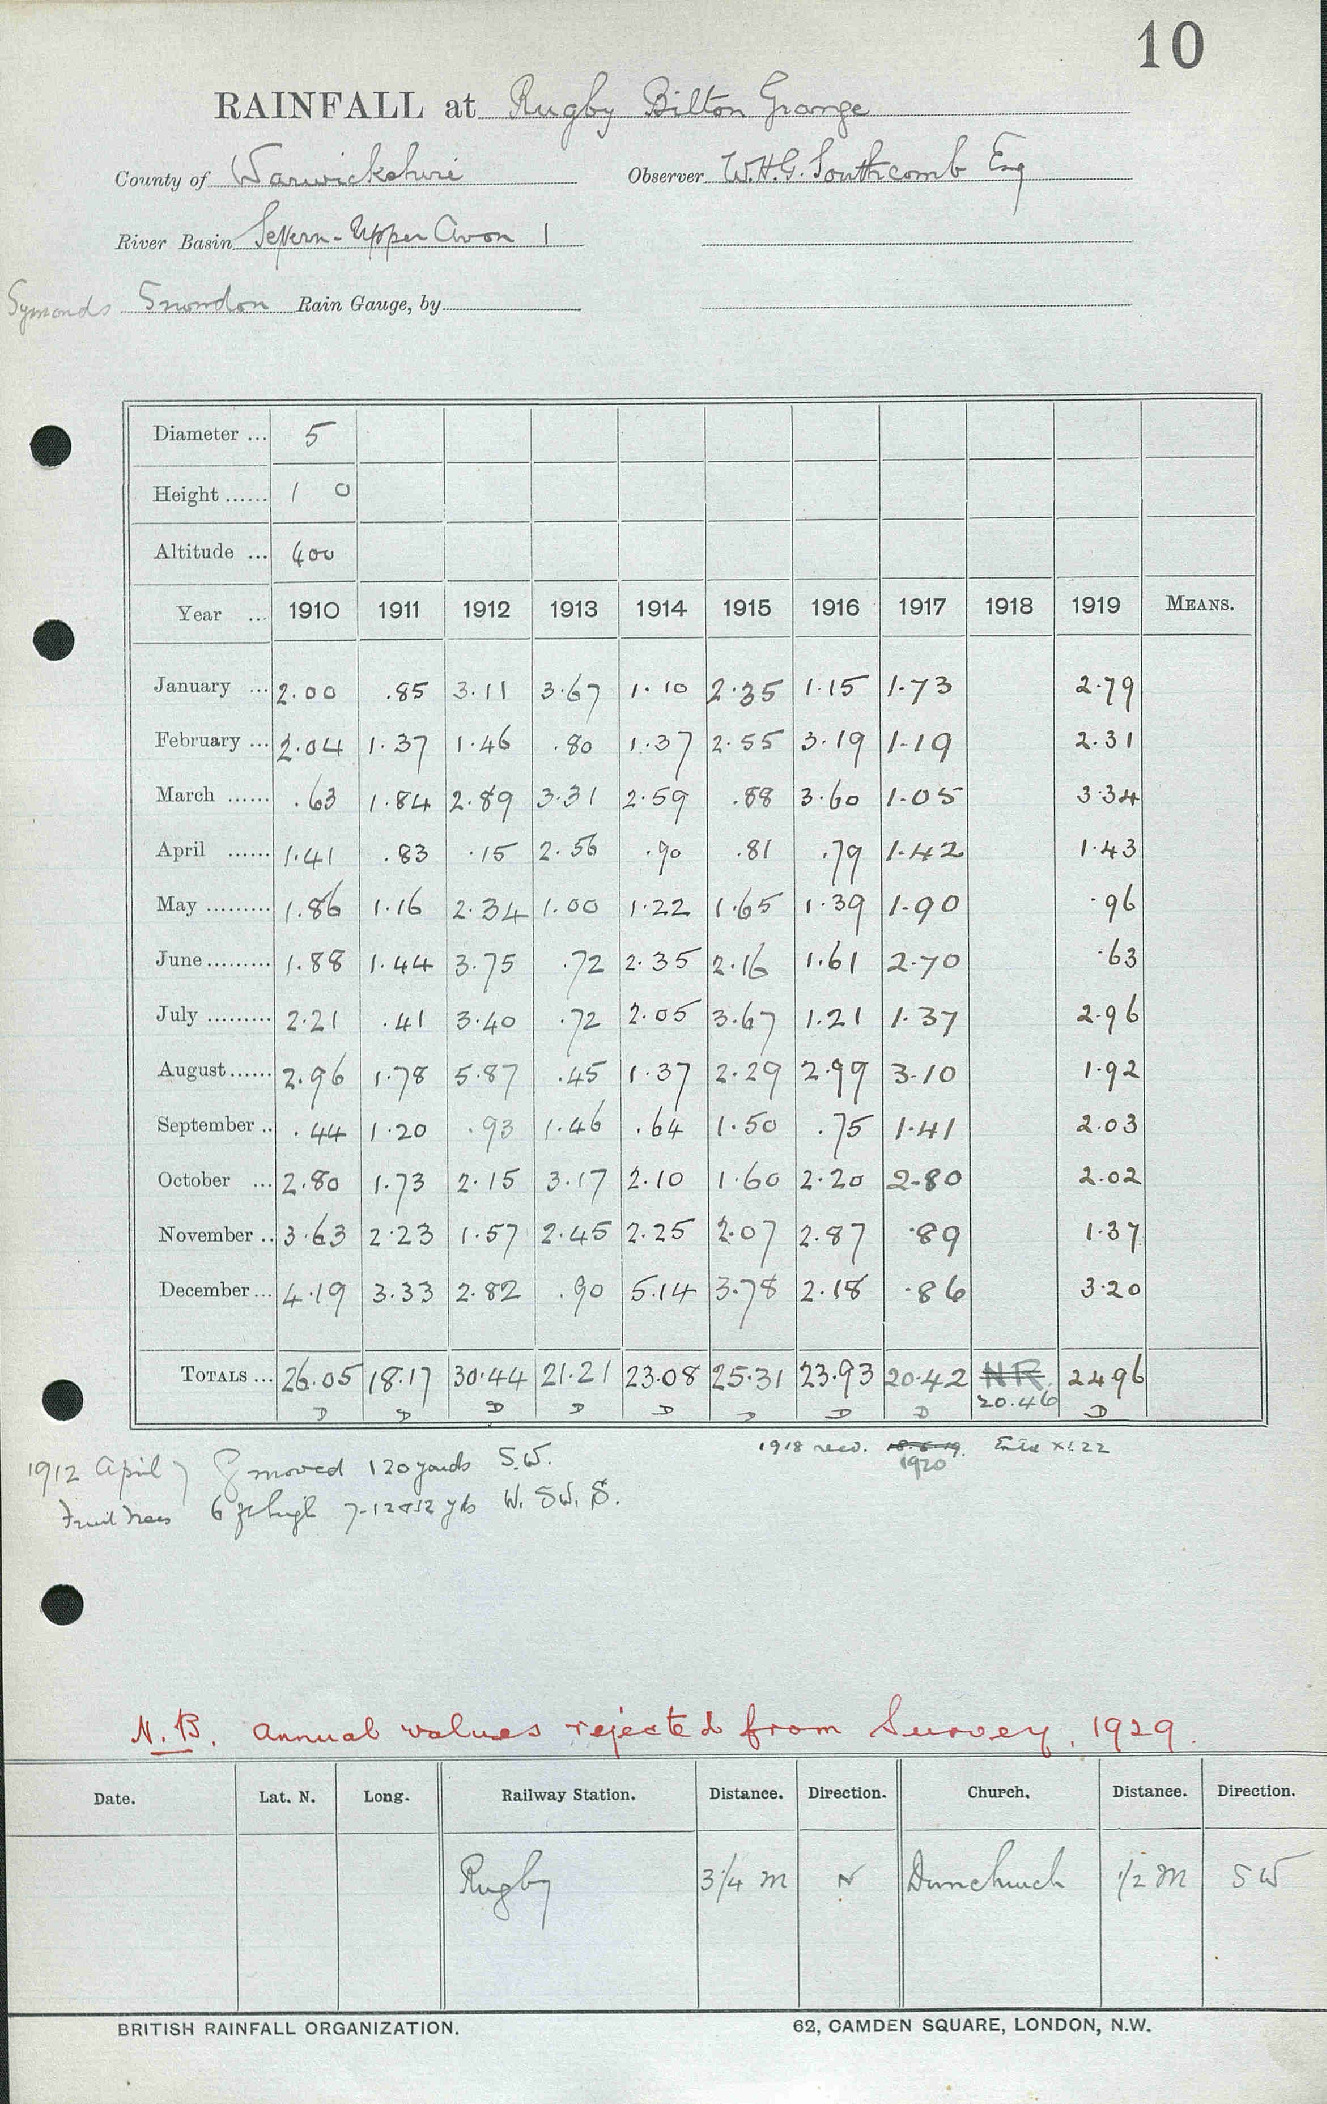 10
RAINFALL at Rugby Bilton Grange
County of Warwickshire Observer W.H.G. Southcomb Esq
River Basin Severn-Upper Avon 1
Symonds Snowdon Rain Gauge, by
Diameter ... 5
Height ...... 1 0
Altitude ... 400
Year ... 1910 1911 1912 1913 1914 1915 1916 1917 1918 1919 MEANS.
January ... 2.00 .85 3.11 3.67 1.10 2.35 1.15 1.73 2.79
February ... 2.04 1.37 1.46 .80 1.37 2.55 3.19 1.19 2.31
March ...... .63 1.84 2.89 3.31 2.59 .88 3.60 1.05 3.34
April ...... 1.41 .83 .15 2.56 .90 .81 .79 1.42 1.43
May ......... 1.86 1.16 2.34 1.00 1.22 1.65 1.39 1.90 .96
June ......... 1.88 1.44 3.75 .72 2.35 2.16 1.61 2.70 .63
July ......... 2.21 .41 3.40 .72 2.05 3.67 1.21 1.37 2.96
August ...... 2.96 1.78 5.87 .45 1.37 2.29 2.99 3.10 1.92
September .. .44 1.20 .93 1.46 .64 1.50 .75 1.41 2.03
October ... 2.80 1.73 2.15 3.17 2.10 1.60 2.20 2.80 2.02
November .. 3.63 2.23 1.57 2.45 2.25 2.07 2.87 .89 1.37
December ... 4.19 3.33 2.82 .90 5.14 3.78 2.18 .86 3.20
TOTALS ... 26.05 18.17 30.44 21.21 23.08 25.31 23.93 20.42 NR 24.96
20.46
D D D D D D D D D
1918 recd. 1920
1912 April moved 120 yards S.W.
Fruit trees 6 ft high 7-12 & 12 yds W. SW. S.
N.B. Annual values rejected from Survey, 1929.
Date. Lat. N. Long. Railway Station. Distance. Direction. Church. Distance. Direction.
Rugby 3 1/4 M N Dunchurch 1/2 M SW
BRITISH RAINFALL ORGANIZATION. 62, CAMDEN SQUARE, LONDON, N.W.